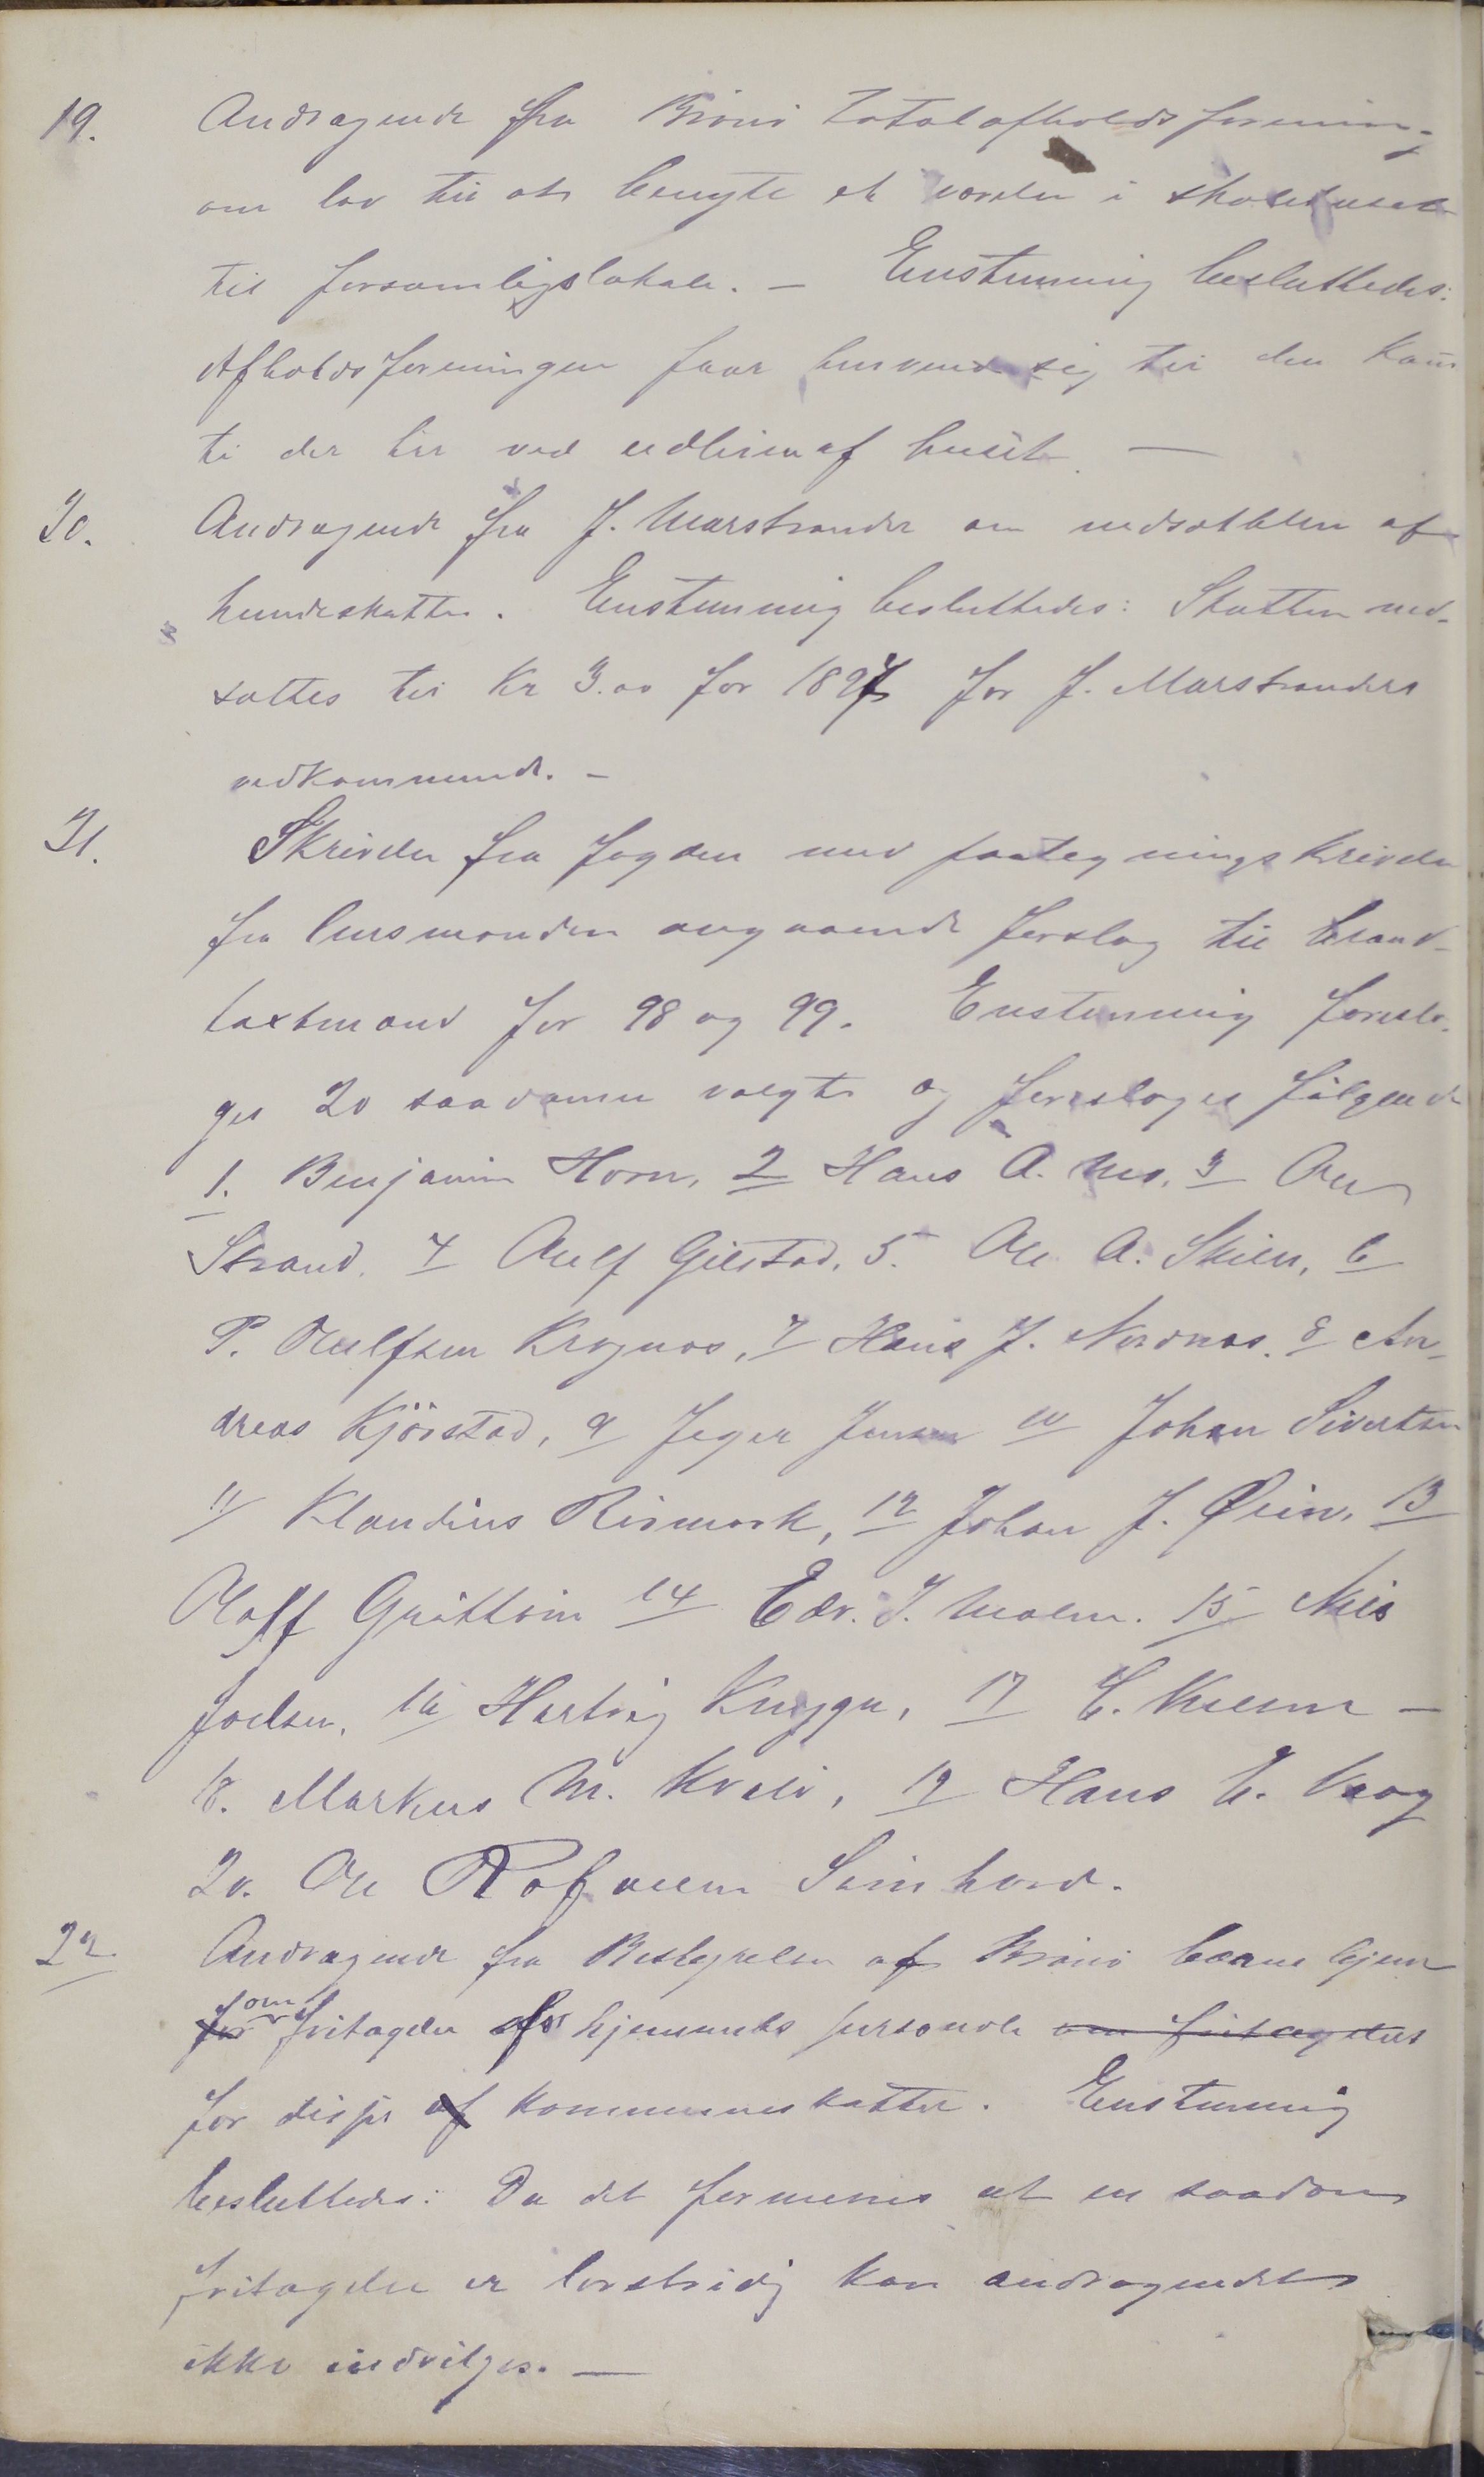 19. Andragende fra Brønø Totalafholdsforening
om lov til at benytte et værelse i skolehuset
til forsamligslokale. — Enstemmig besluttedes:
Afholdsforeningen faar henvende sig til den Kom
te der har med udleien af huset. —
20. Andragende fra J. Marstrander om nedsættelse af
hundeskatten. Enstemmig besluttedes: Skatten ned-
sættes til Kr 3.00 for 1897 for J. Marstranders
vedkommende. —
21. Skrivelse fra fogden med paategningskrivelse
fra lensmanden angaaende forslag til brand-
taxtmænd for 98 og 99. Enstemmig foresla-
ges 20 saadanne valgte og foreslages følgende
1. Benjamin Horn, 2 Hans A. Mo, 3 Ole
Strand. 4 Aulf Gilstad, 5. Ole A. Skille, 6
P. Aulfsen Krognæs, 7 Hans J. Nordnæs. 8 An-
dreas Kjörstad, 9 Jeger Jensen 10 Johan Sivertsen
11 Klaudius Rismark, 12 Johan J. Øien, 13
Olaff Gråttien 14 Edv. J. Moen. 15 Nils
Joelsen, 16 Hartvig Knygge, 17 E. —
18. Markus M. Kvalø, 19 Hans E. Vaag
20. Ole Sømhovd.
22 Andragende fra Bestyrelsen af Brønø barnehjem
for om fritagelse for hjemmets personale om fritagelse
for disses af kommuneskatter. Enstemmig
besluttedes: Da det formenes at en saadan
fritagelse er lovstridig kan andragendet
ikke indvilges. —